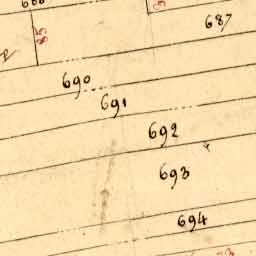 687
85
690
691
692
693
694